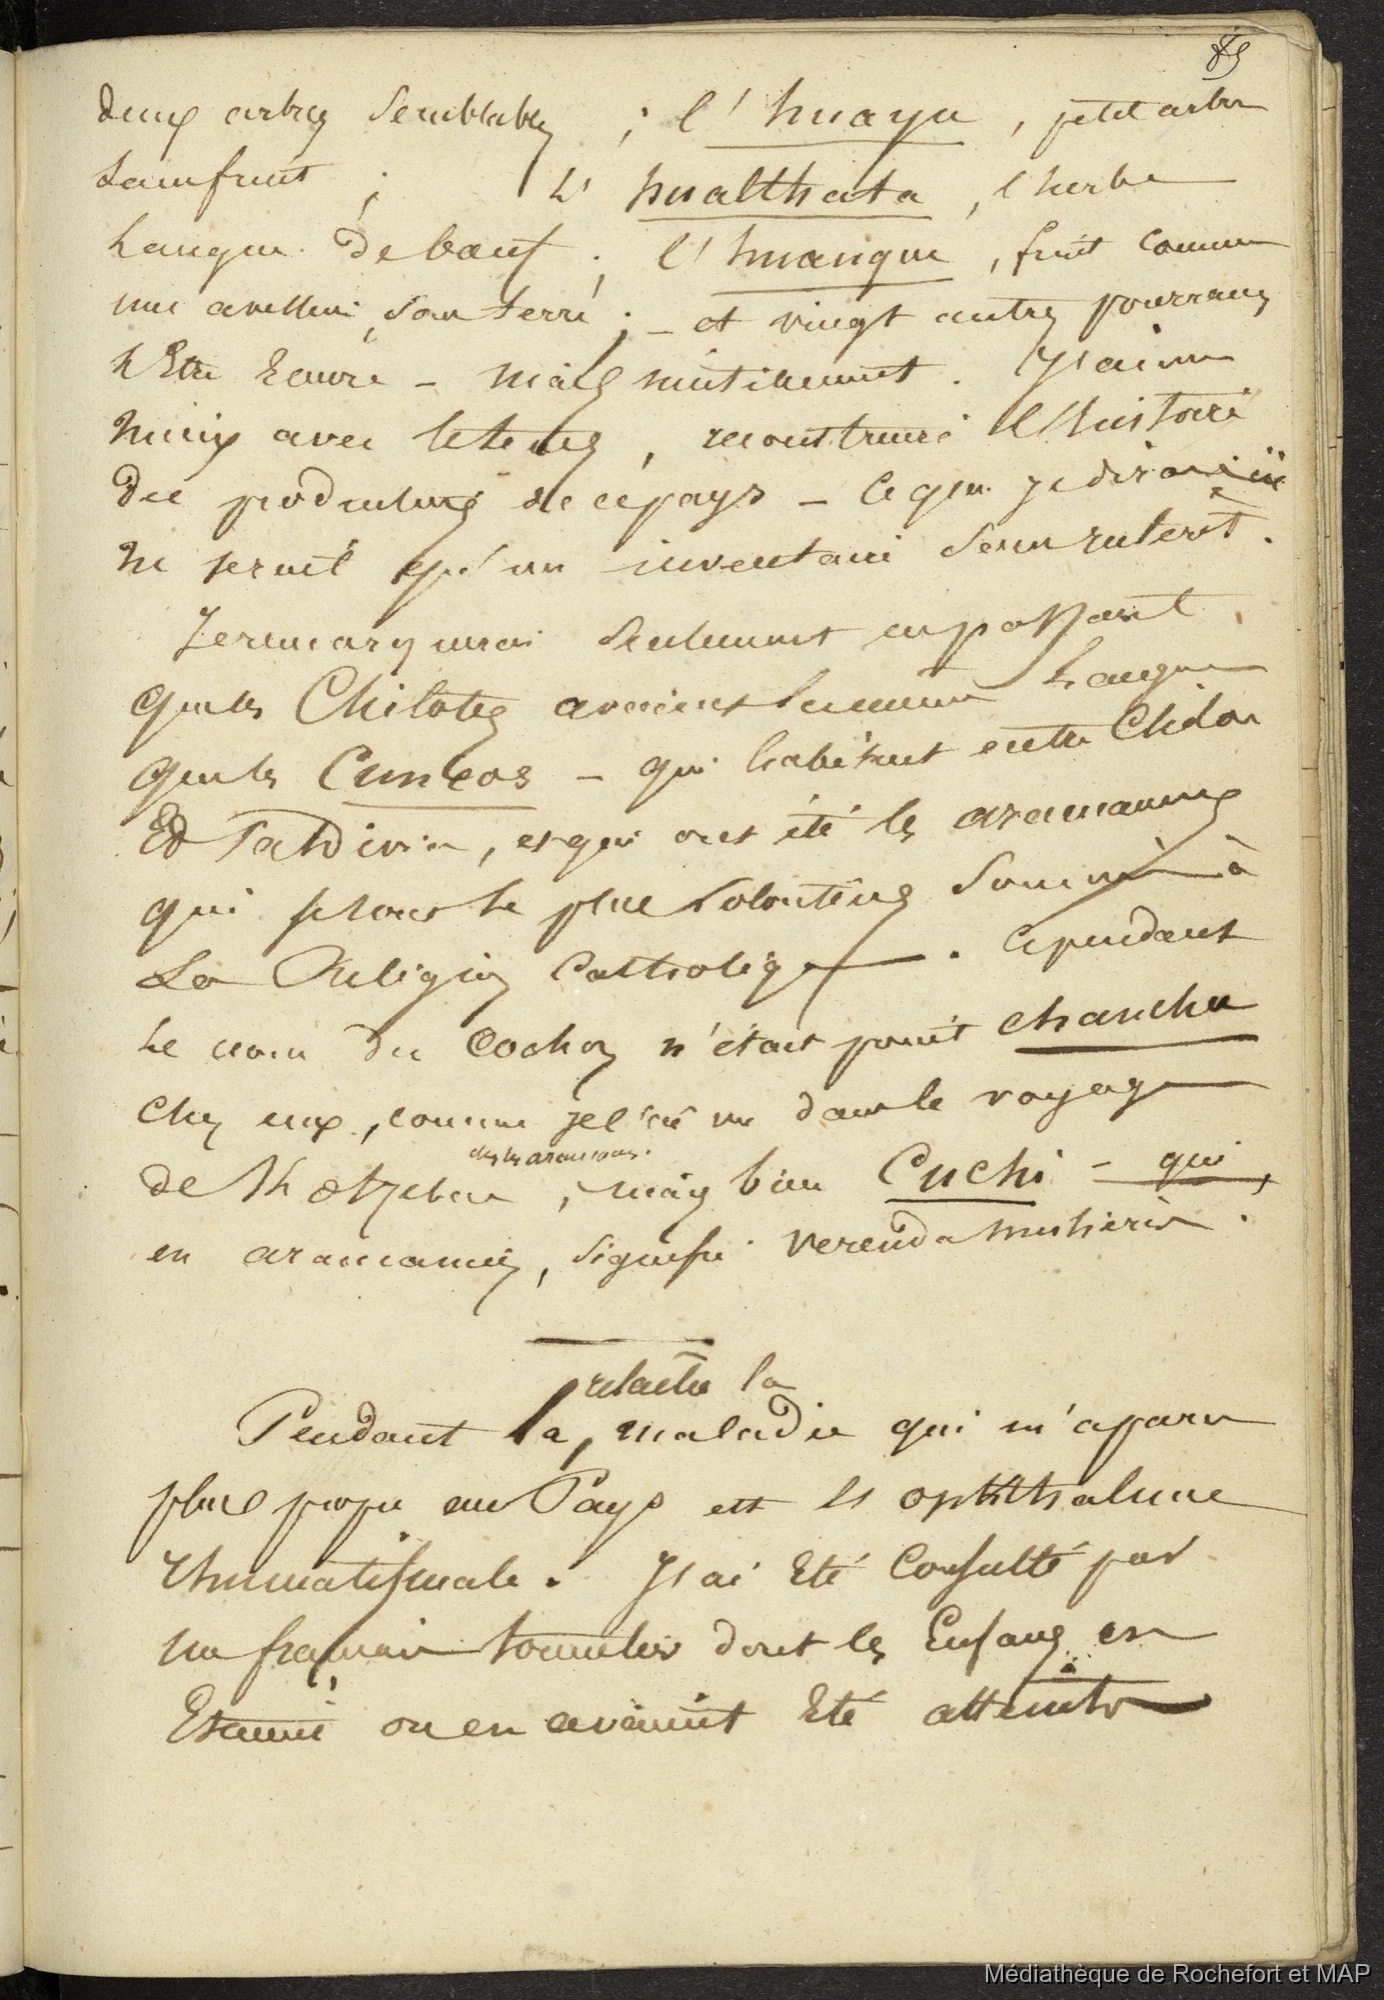 89
deux arbres semblables ; l'huayu, petit arbre
sans fruit ; L'hualthata, l'herbe
Langue de boeuf ; l'huanque, fruit comme
une aveline sous terre ; - et vingt autres pourraient
l'Etre Encore - mais inutilement. J'aime
mieux avec le tems, reconstruire l'histoire
des productions de ce pays - ce que je dirais ici
ne serait qu'un inventaire sans interet.
Je remarquerai seulement en passant
que les Chilotes avaient la même Langue
que les Cuncos - qui habitent entre Chiloe
Et Valdivia, et qui ont été les araucaniens
qui se sont le plus volontiers soumis à
La Religion Catholique. Cependant
Le nom du Cochon n'était point chanchu
chez eux, comme je l'ai vu dans le voyage
de Kotzebue, chez les araucans. mais bien Cuchi - qui,
en araucanien, signifie Verenda mulieris.
Pendant la relache la maladie qui m'a paru
plus propre au Pays est l'ophthalmie
rhumatismale. J'ai Eté Consulté par
un français tonnelier dont les Enfans en
Etaient ou en avaient Eté atteints
Médiathèque de Rochefort et MAP